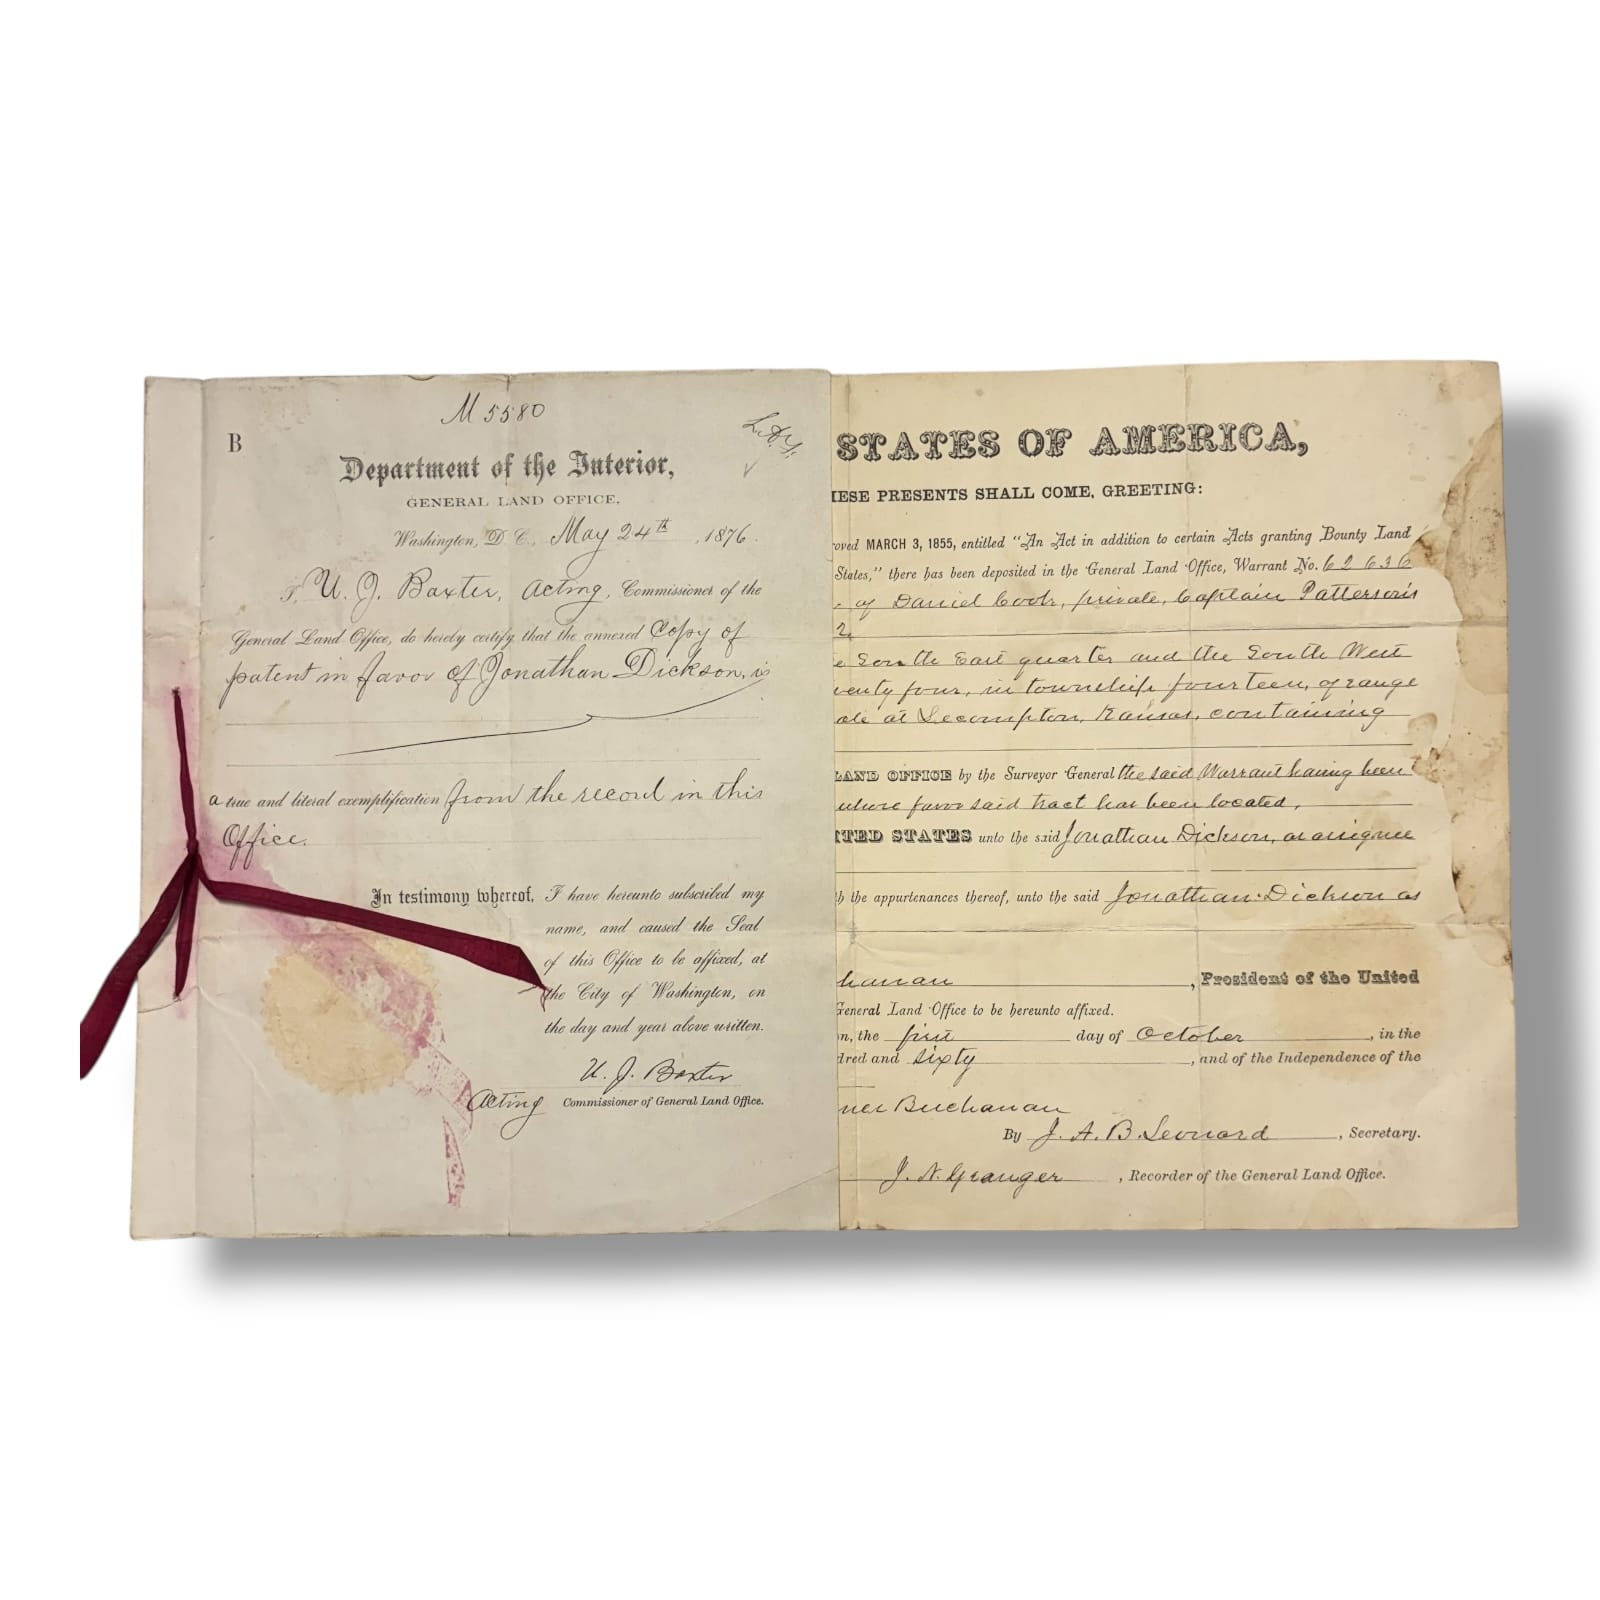 M 5580
B
L.A.Y.
Department of the Interior,
GENERAL LAND OFFICE,
Washington, D. C., May 24th, 1876.
I, U. J. Baxter, Acting, Commissioner of the
General Land Office, do hereby certify that the annexed Copy of
patent in favor of Jonathan Dickson, is
a true and literal exemplification from the record in this
Office.
In testimony whereof, I have hereunto subscribed my
name, and caused the Seal
of this Office to be affixed, at
the City of Washington, on
the day and year above written.
U. J. Baxter
Acting Commissioner of General Land Office.
STATES OF AMERICA,
HESE PRESENTS SHALL COME, GREETING:
oved MARCH 3, 1855, entitled "An Act in addition to certain Acts granting Bounty Land
States," there has been deposited in the General Land Office, Warrant No. 62636
of Daniel Cook, private, Captain Patterson's
2,
e South East quarter and the South West
wenty four, in township fourteen, of range
ale at Lecompton, Kansas, containing
LAND OFFICE by the Surveyor General the said Warrant having been
whose favor said tract has been located,
ITED STATES unto the said Jonathan Dickson, as assignee
h the appurtenances thereof, unto the said Jonathan Dickson as
hanan, President of the United
General Land Office to be hereunto affixed.
n, the first day of October, in the
dred and sixty, and of the Independence of the
mes Buchanan
By J. A. B. Leonard, Secretary.
J. N. Granger, Recorder of the General Land Office.